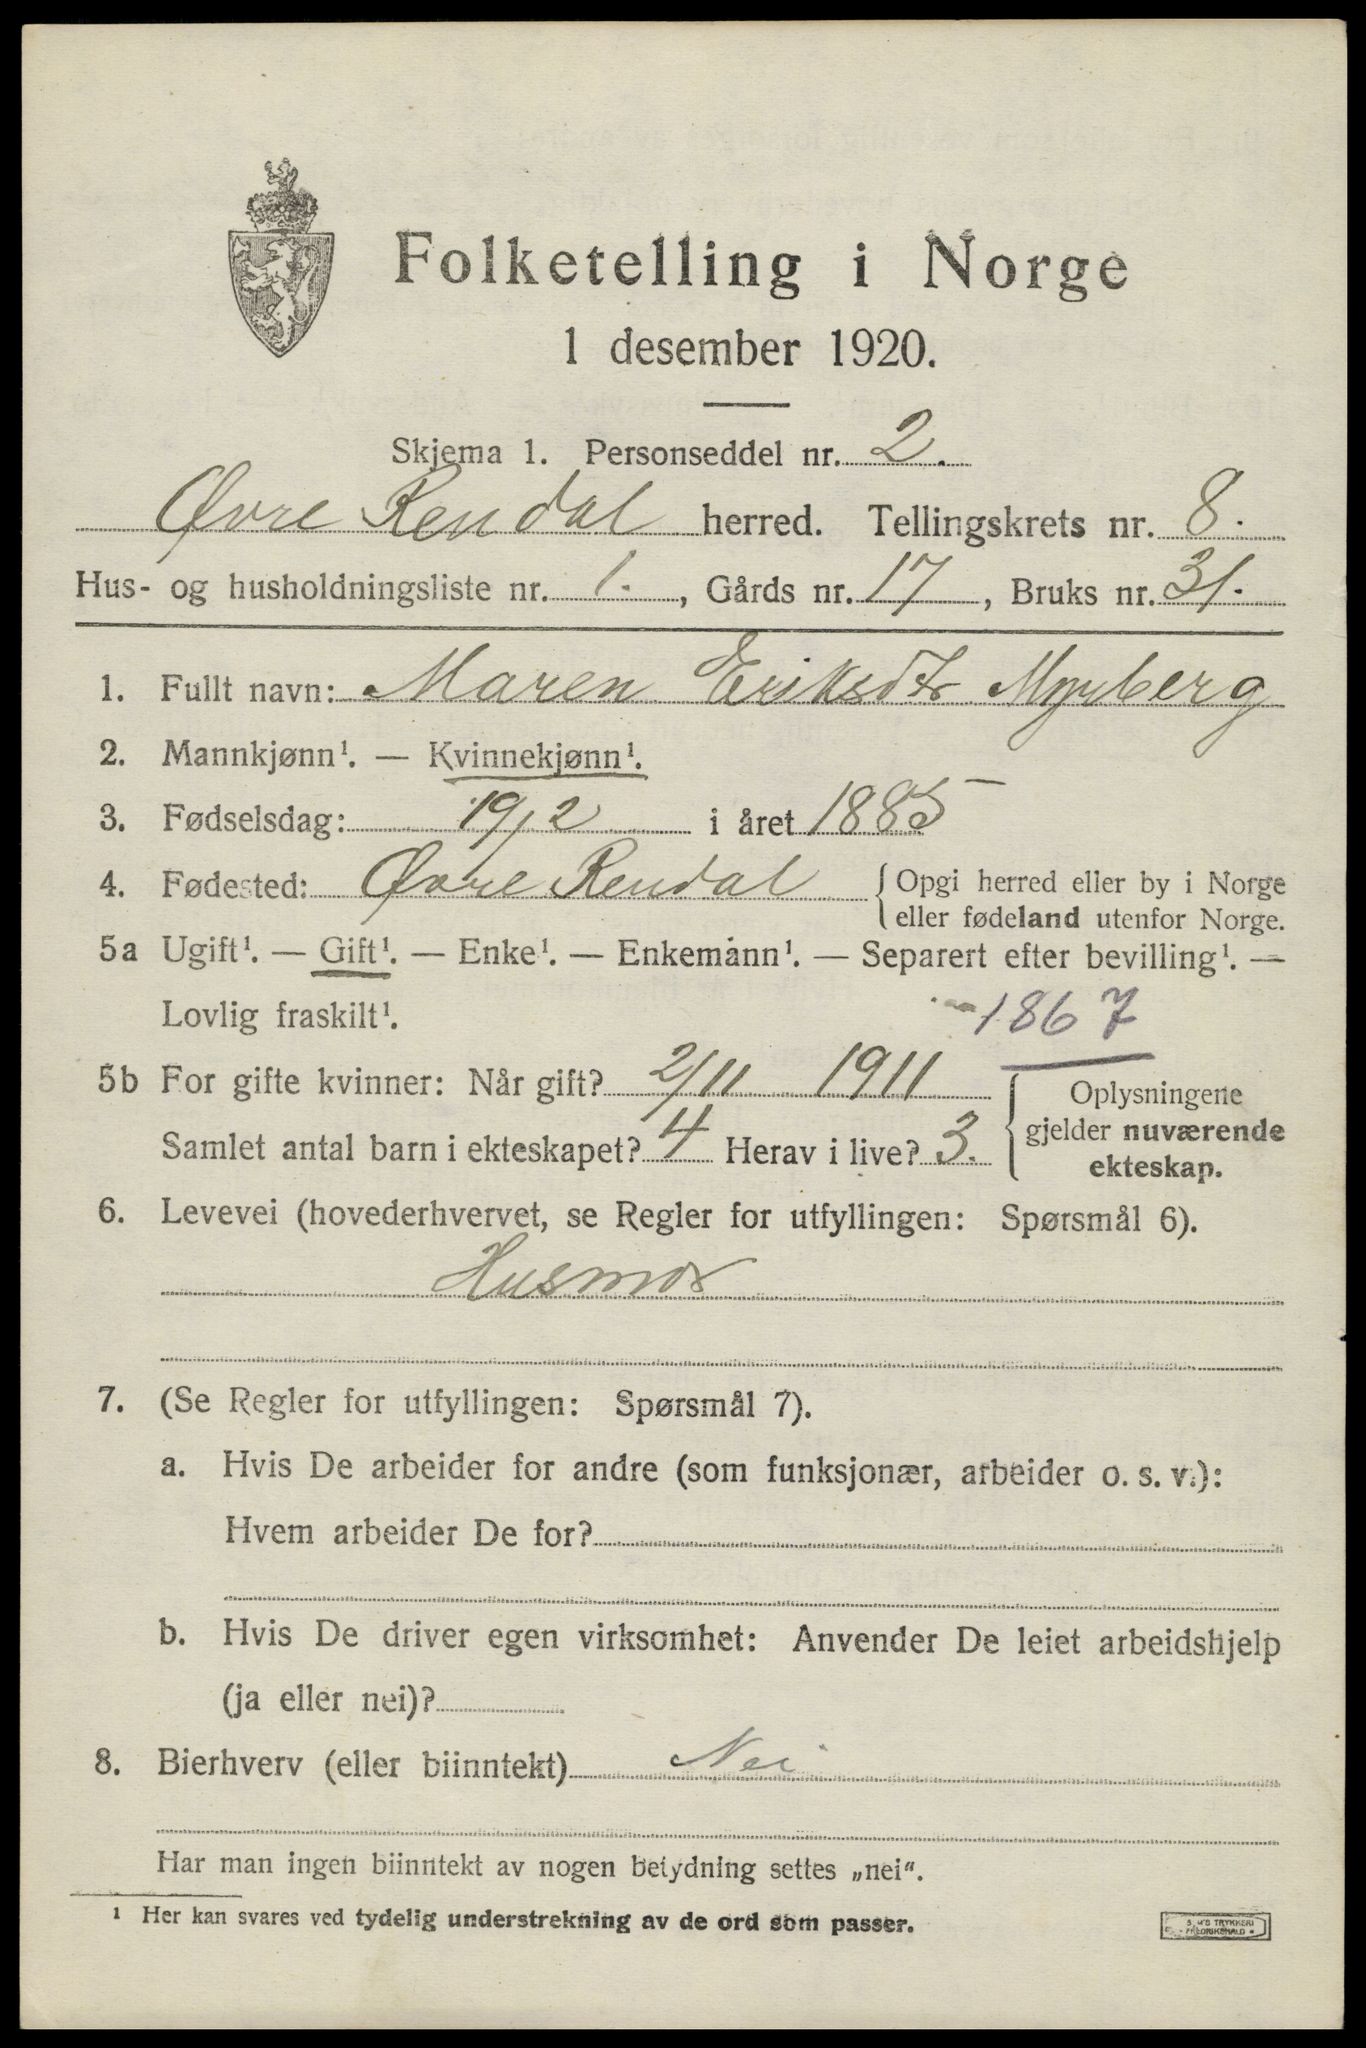 Folketelling i Norge
1 desember 1920.
Skjema 1. Personseddel nr. 2.
Øvre Rendal herred. Tellingskrets nr. 8.
Hus- og husholdningsliste nr. 1., Gårds nr. 17, Bruks nr. 31.
1. Fullt navn: Maren Eriksdtr Myrberg
2. Mannkjønn¹. — Kvinnekjønn¹.
3. Fødselsdag: 19/2 i året 1885
4. Fødested: Øvre Rendal { Opgi herred eller by i Norge
eller fødeland utenfor Norge.
5a Ugift¹. — Gift¹. — Enke¹. — Enkemann¹. — Separert efter bevilling¹. —
Lovlig fraskilt¹. 1867
5b For gifte kvinner: Når gift? 2/11 1911
Samlet antal barn i ekteskapet? 4 Herav i live? 3.
Oplysningene
gjelder nuværende
ekteskap.
6. Levevei (hovederhvervet, se Regler for utfyllingen: Spørsmål 6).
Husmor
7. (Se Regler for utfyllingen: Spørsmål 7).
a. Hvis De arbeider for andre (som funksjonær, arbeider o. s. v.):
Hvem arbeider De for?
b. Hvis De driver egen virksomhet: Anvender De leiet arbeidshjelp
(ja eller nei)?
8. Bierhverv (eller biinntekt) Nei
Har man ingen biinntekt av nogen betydning settes „nei“.
¹ Her kan svares ved tydelig understrekning av de ord som passer.
TRYKKERI
FREDRIKSHALD